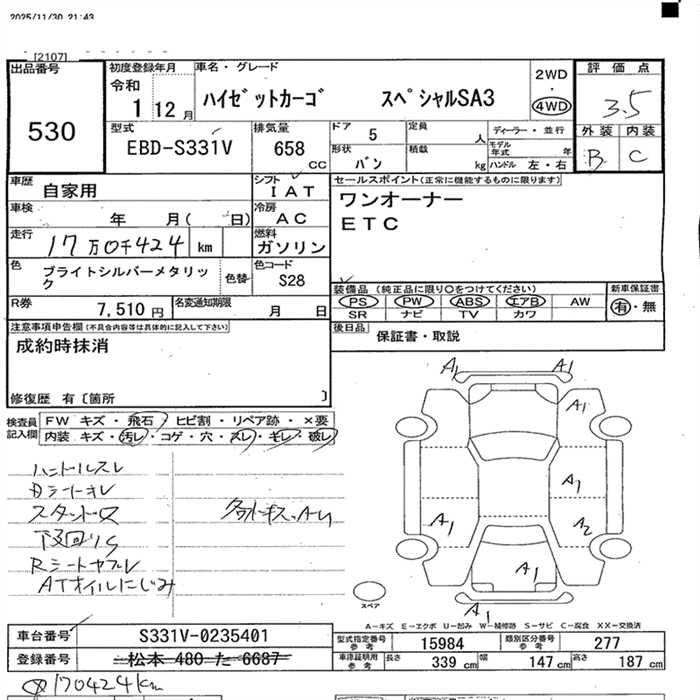 2025/11/30 21:43
[2107]
出品番号
530
初度登録年月
令和
1 12月
車名・グレード
ハイゼットカーゴ スペシャルSA3
2WD
・
4WD
評価点
3.5
外装 内装
B C
型式
EBD-S331V
排気量
658
cc
ドア
5
形状
バン
定員
人
積載
kg
ディーラー・並行
モデル年式 年
ハンドル 左・右
車歴
自家用
シフト
IAT
車検
年 月( 日)
冷房
AC
走行
17万0千424 km
燃料
ガソリン
色
ブライトシルバーメタリック
色替
色コード
S28
R券
7,510円
名変通知期限
月 日
セールスポイント(正常に機能するものに限ります)
ワンオーナー
ETC
装備品 (純正品に限り○をつけてください)
PS PW ABS エアB AW
SR ナビ TV カワ
新車保証書
有・無
後日品
保証書・取説
注意事項申告欄(不具合内容等は具体的に記入して下さい)
成約時抹消
修復歴 有〔箇所 〕
検査員
記入欄
FW キズ・飛石・ヒビ割・リペア跡・×要
内装 キズ・汚レ・コゲ・穴・スレ・キレ・破レ
ハンドルスレ
Dシートキレ
下回りS
Rシートヤブレ
ATオイルにじみ
各所キズ・A,U
A1 A1
A1
A1
A1 A2
A1
A1
スペア
A-キズ E-エクボ U-凹み W-補修跡 S-サビ C-腐食 XX-交換済
車台番号
S331V-0235401
登録番号
松本 480 た 6687
型式指定番号
参考
15984
類別区分番号
参考
277
車庫証明用
参考
長さ 339 cm 幅 147 cm 高さ 187 cm
170424km